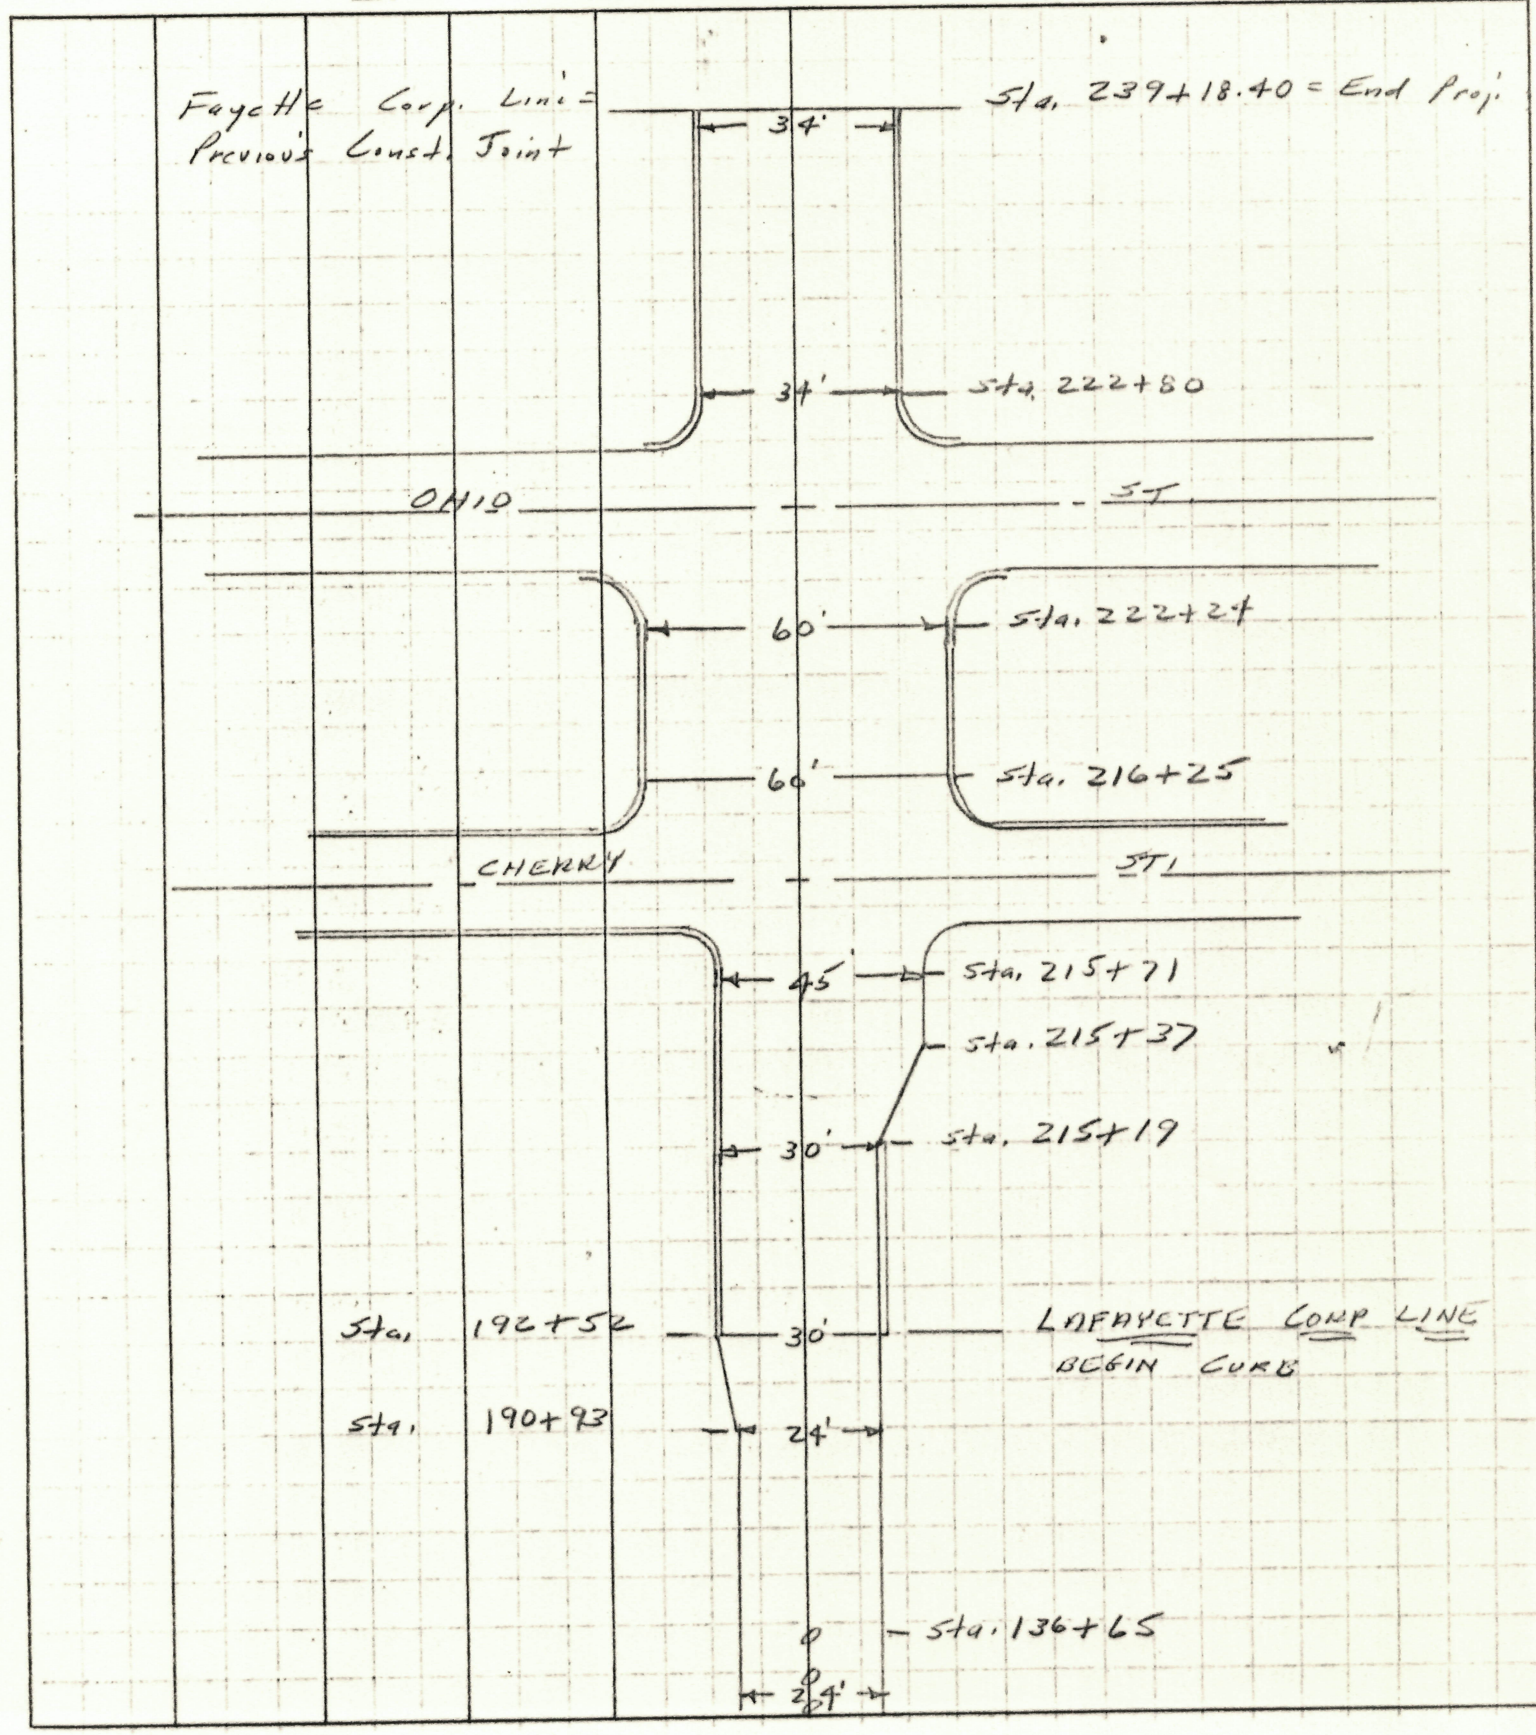 Fayette Corp. Line =
Previous Const. Joint
Sta. 239+18.40 = End Proj.
34'
34'
Sta. 222+80
OHIO ST.
60'
Sta. 222+24
60'
Sta. 216+25
CHERRY ST.
45'
Sta. 215+71
Sta. 215+37
30'
Sta. 215+19
Sta. 192+52
30'
LAFAYETTE CORP LINE
BEGIN CURB
Sta. 190+93
24'
Sta. 136+65
24'